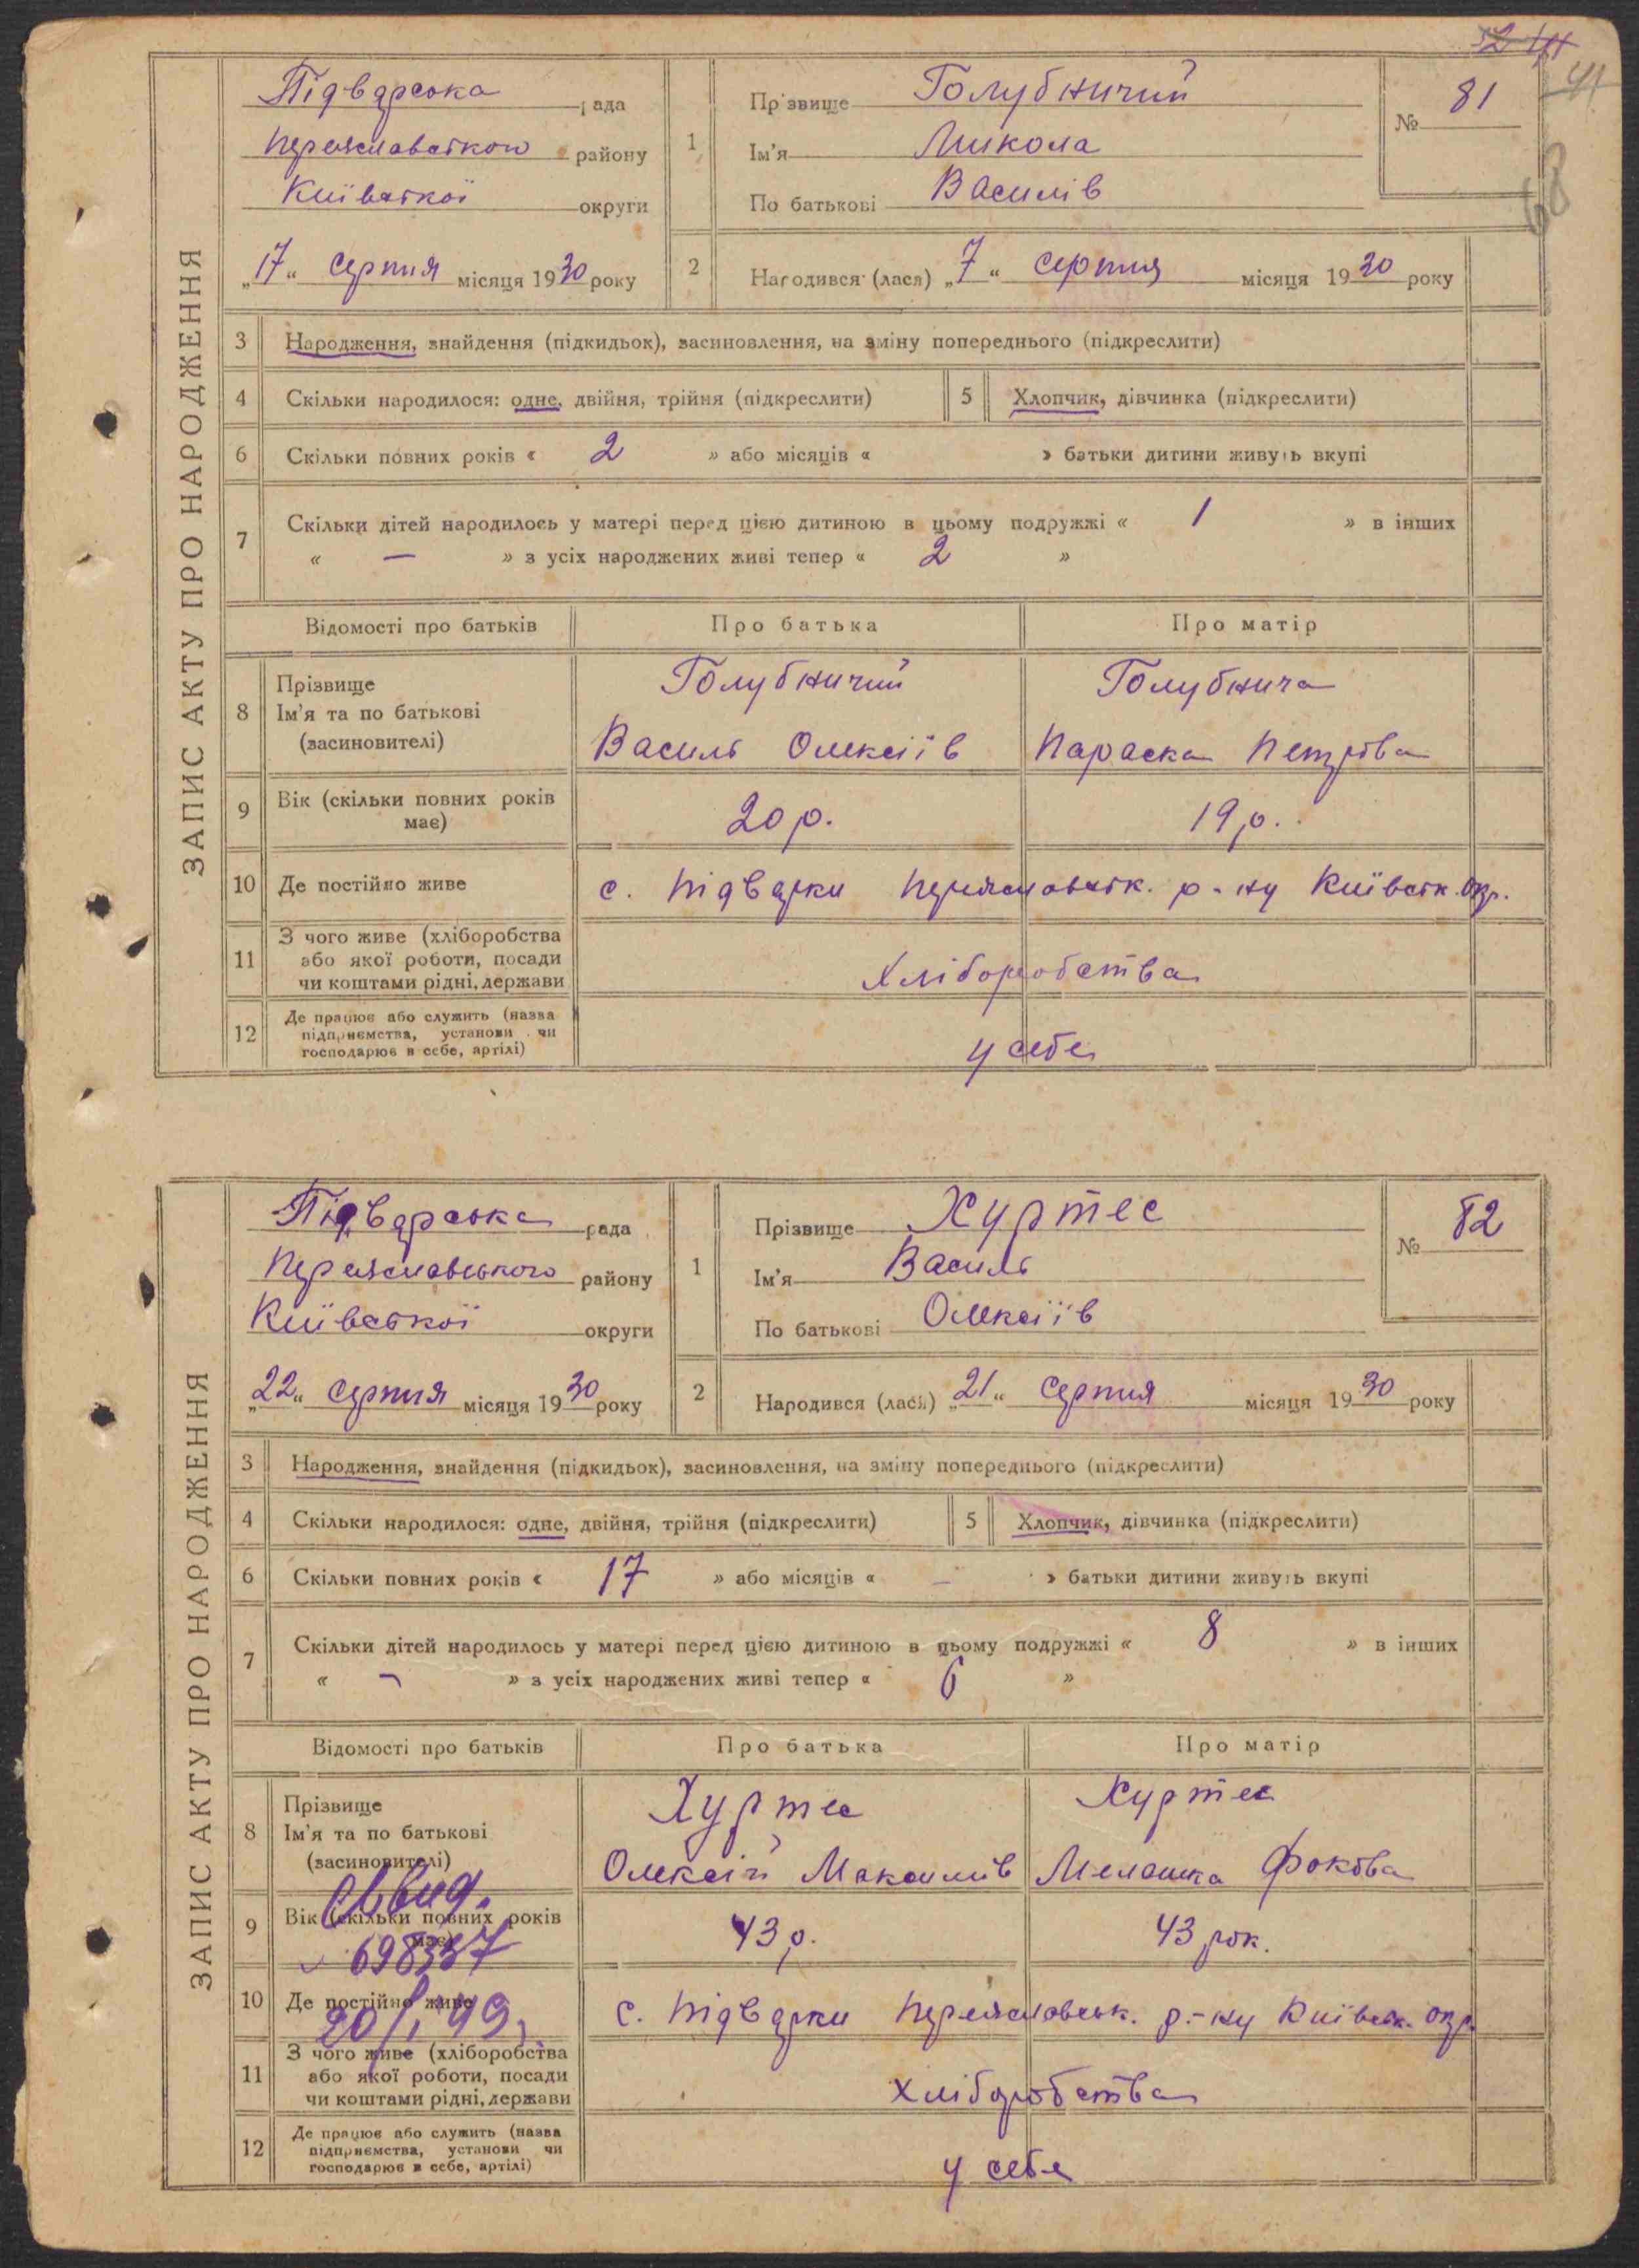 41
68
ЗАПИС АКТУ ПРО НАРОДЖЕННЯ
Підварська рада
Переяславського району
Київської округи
„17“ серпня місяця 1930 року
1 Прізвище Голубничий
Ім'я Микола
По батькові Василів
№ 81
2 Народився (лася) „7“ серпня місяця 1930 року
3 Народження, знайдення (підкидьок), засиновлення, на зміну попереднього (підкреслити)
4 Скільки народилося: одне, двійня, трійня (підкреслити) 5 Хлопчик, дівчинка (підкреслити)
6 Скільки повних років « 2 » або місяців « » батьки дитини живуть вкупі
7 Скільки дітей народилось у матері перед цією дитиною в цьому подружжі « 1 » в інших
« — » з усіх народжених живі тепер « 2 »
Відомості про батьків Про батька Про матір
8 Прізвище Голубничий Голубнича
Ім'я та по батькові
(засиновителі) Василь Олексіїв Параска Петрова
9 Вік (скільки повних років
має) 20 р. 19 р.
10 Де постійно живе с. Підварки Переяславськ. р-ну Київськ. Окр.
11 З чого живе (хліборобства
або якої роботи, посади
чи коштами рідні, держави Хліборобства
12 Де працює або служить (назва
підприємства, установи чи
господарює в себе, артілі) у себе
ЗАПИС АКТУ ПРО НАРОДЖЕННЯ
Підварська рада
Переяславського району
Київської округи
„22“ серпня місяця 1930 року
1 Прізвище Хуртес
Ім'я Василь
По батькові Олексіїв
№ 82
2 Народився (лася) „21“ серпня місяця 1930 року
3 Народження, знайдення (підкидьок), засиновлення, на зміну попереднього (підкреслити)
4 Скільки народилося: одне, двійня, трійня (підкреслити) 5 Хлопчик, дівчинка (підкреслити)
6 Скільки повних років « 17 » або місяців « — » батьки дитини живуть вкупі
7 Скільки дітей народилось у матері перед цією дитиною в цьому подружжі « 8 » в інших
« — » з усіх народжених живі тепер « 6 »
Відомості про батьків Про батька Про матір
8 Прізвище Хуртес Хуртес
Ім'я та по батькові
(засиновителі) Олексій Максимів Мелашка Фокова
свид.
9 Вік (скільки повних років
має) 43 р. 43 рок.
698337
10 Де постійно живе с. Підварки Переяславськ. р-ну Київськ. окр.
11 З чого живе (хліборобства
або якої роботи, посади
чи коштами рідні, держави хліборобства
12 Де працює або служить (назва
підприємства, установи чи
господарює в себе, артілі) у себе